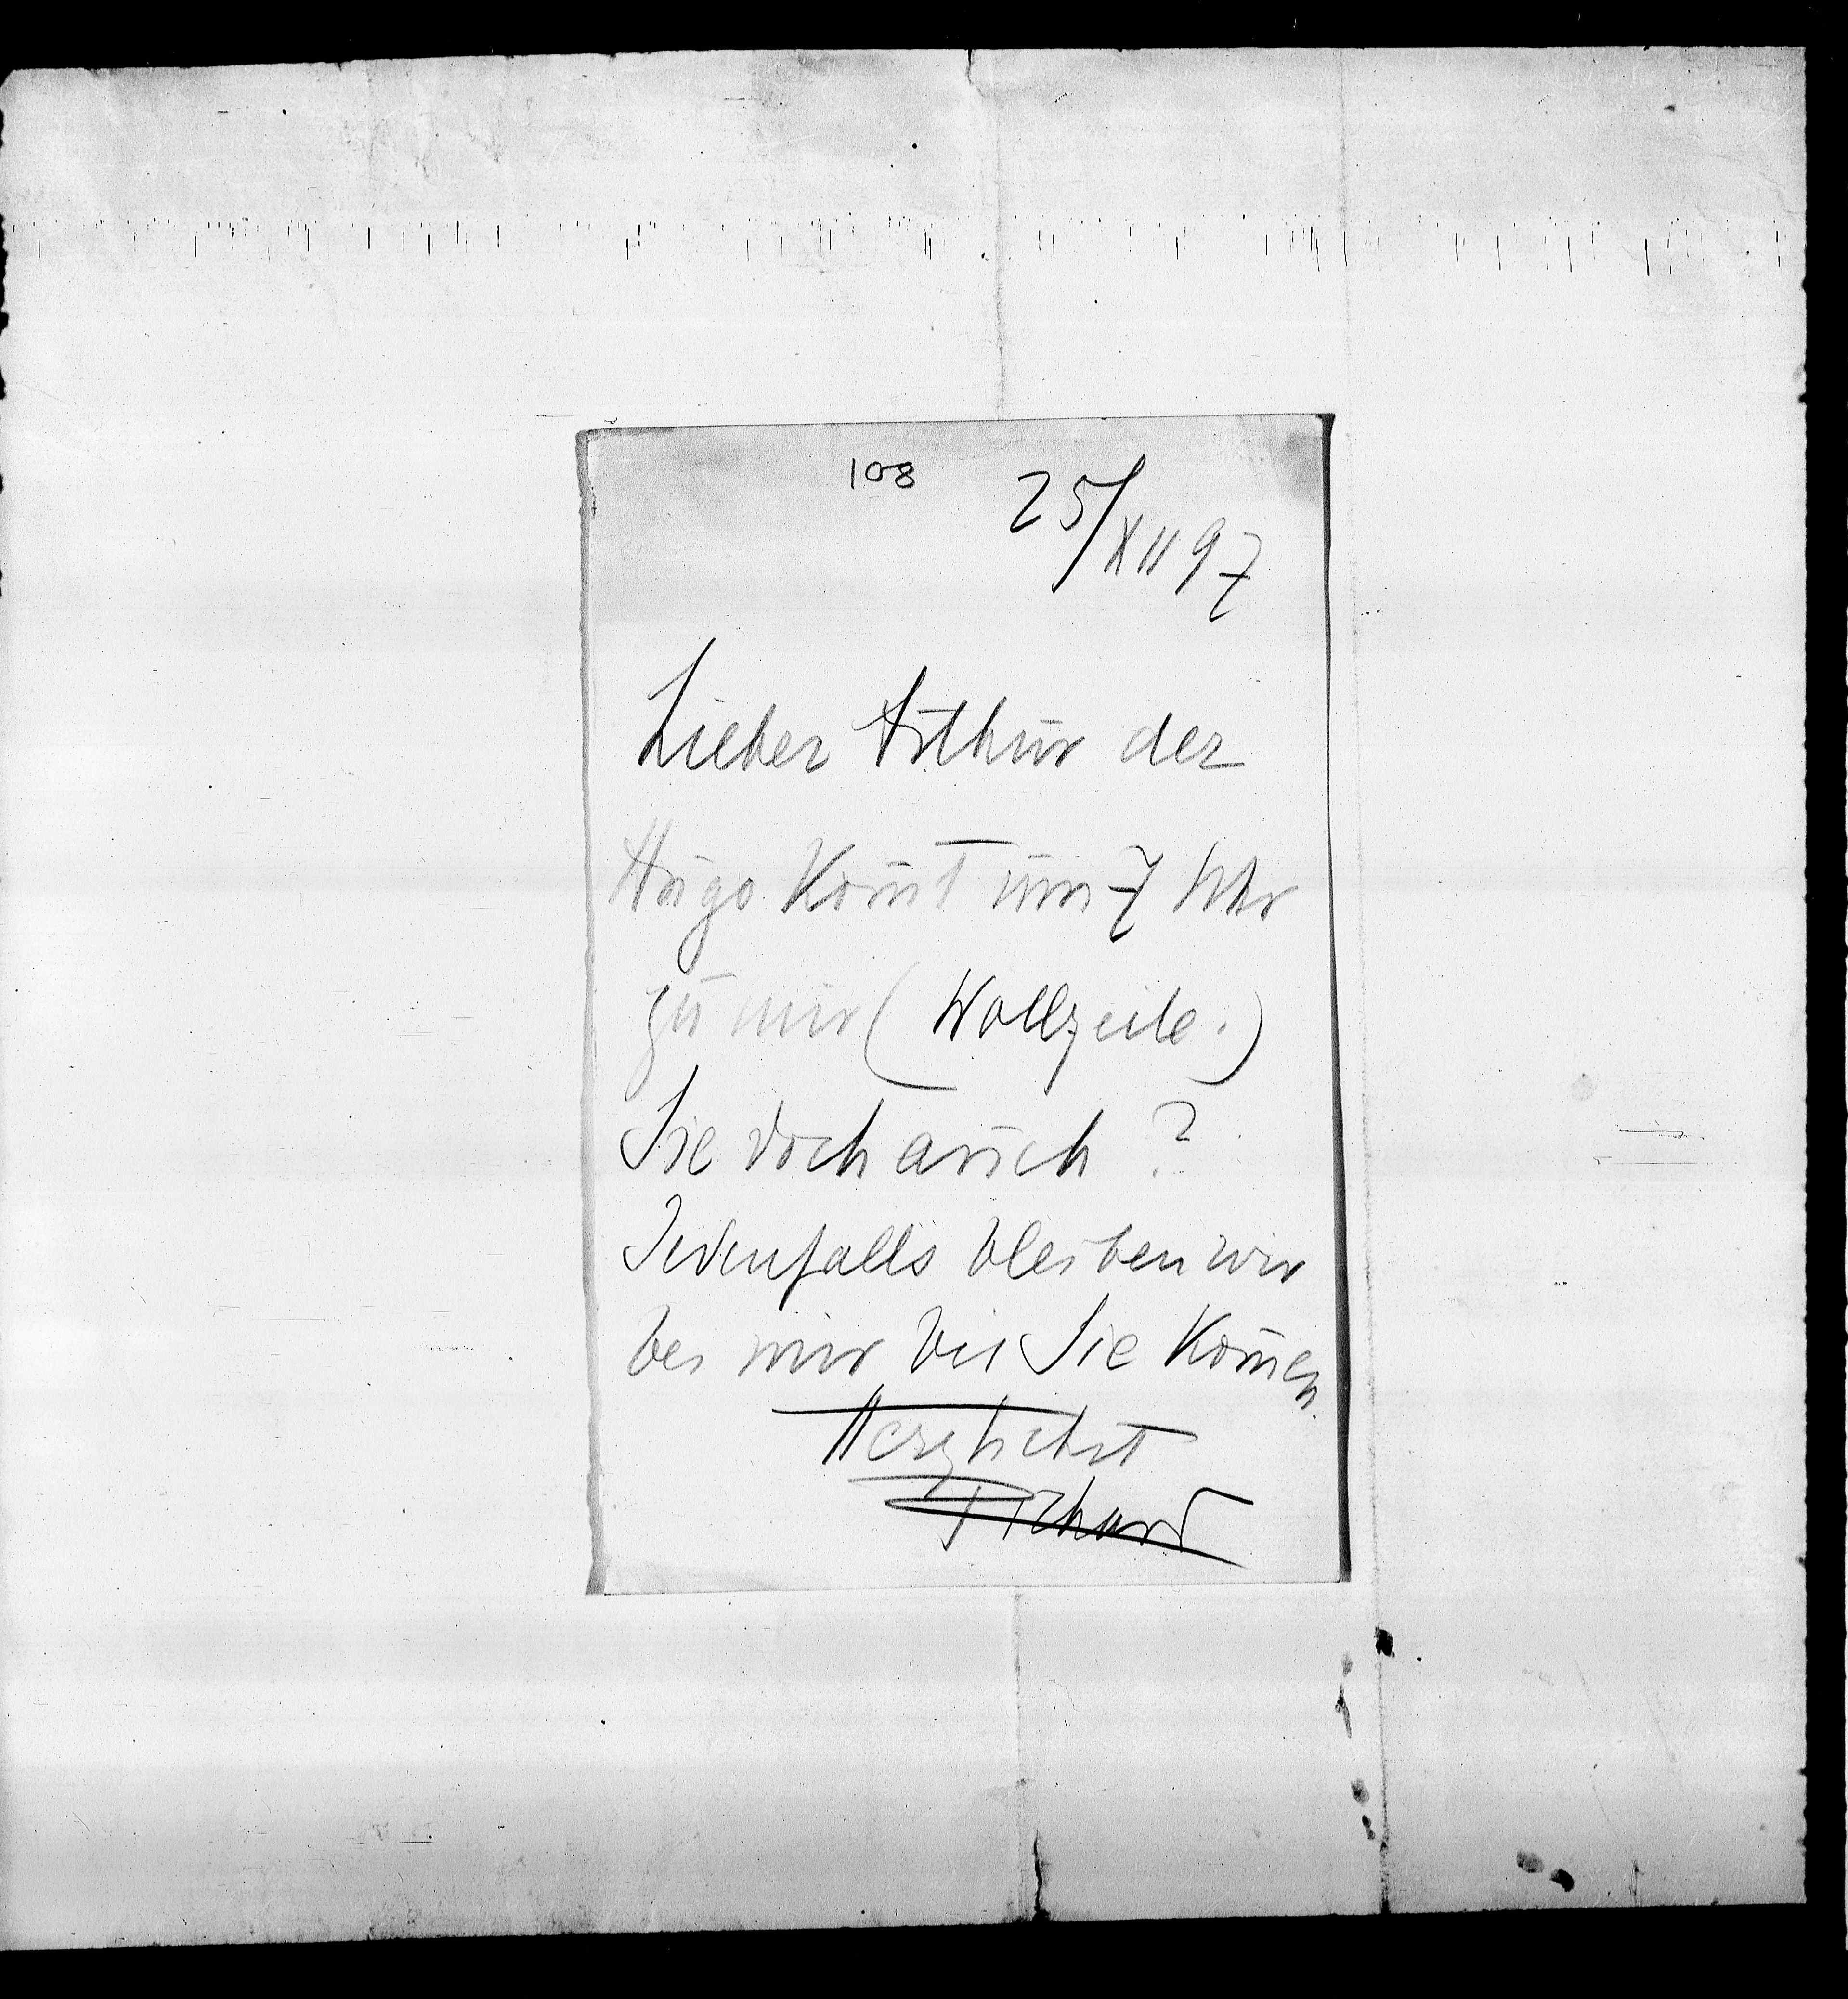 108
25/XII 97
Lieber Arthur der
Hugo kom̄t um 7 Uhr
zu mir (Wollzeile.)
Sie doch auch?
Jedenfalls bleiben wir
bei mir bis Sie kom̄en.
Herzlichst
Richard